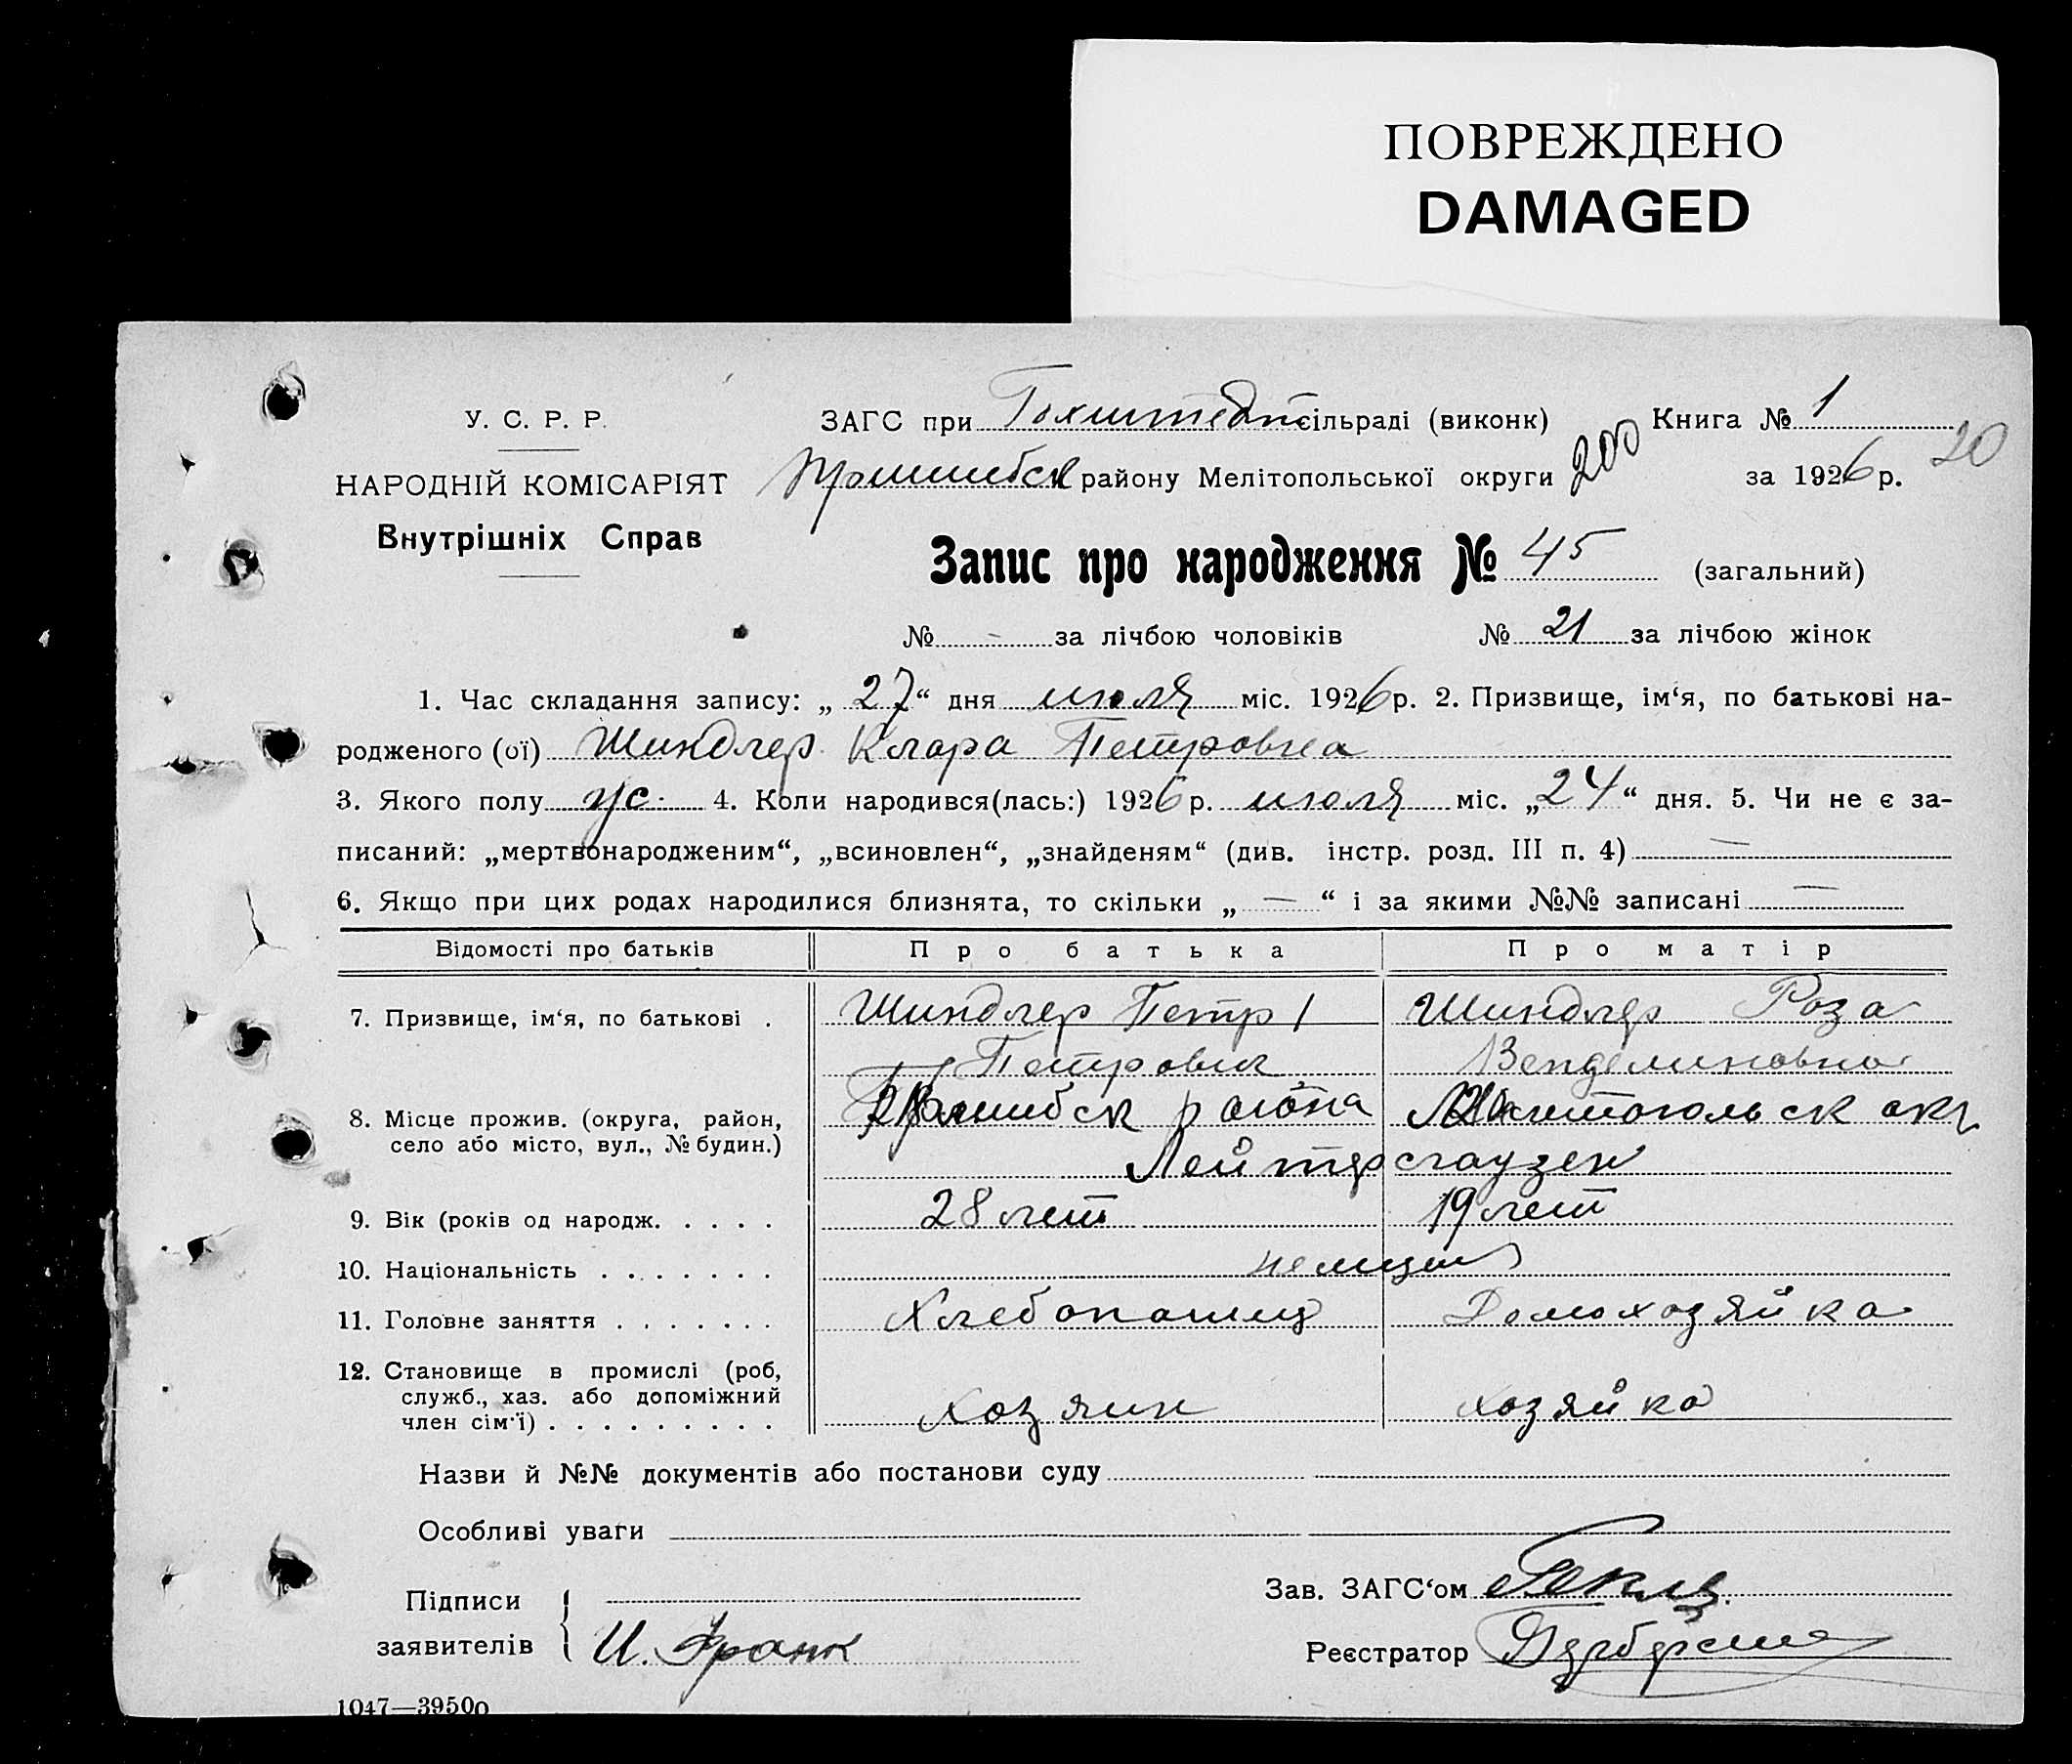 ПОВРЕЖДЕНО
DAMAGED
У. С. Р. Р.
НАРОДНІЙ КОМІСАРІЯТ
Внутрішніх Справ
ЗАГС при Гохштедт сільраді (виконк) Книга № 1
Пришибск району Мелітопольської округи 200 за 1926 р. 20
Запис про народження № 45 (загальний)
№ - за лічбою чоловіків № 21 за лічбою жінок
1. Час складання запису: „ 27 “ дня июля міс. 1926 р. 2. Призвище, ім‘я, по батькові на-
родженого (ої) Шиндлер Клара Петровна
3. Якого полу жс. 4. Коли народився(лась:) 1926 р. июля міс. „ 24 “ дня. 5. Чи не є за-
писаний: „мертвонародженим“, „всиновлен“, „знайденям“ (див. інстр. розд. III п. 4) —
6. Якщо при цих родах народилися близнята, то скільки „ — “ і за якими №№ записані —
Відомості про батьків Про батька Про матір
7. Призвище, ім‘я, по батькові . Шиндлер Петр Шиндлер Роза
Петрович Венделиновна
8. Місце прожив. (округа, район, Пришибск района Мелитопольск окр
село або місто, вул., № будин.) Лейтерсгаузен
9. Вік (років од народж. . . . . 28 лет 19 лет
10. Національність . . . . . . . немцы
11. Головне заняття . . . . . . . Хлебопашец Домохозяйка
12. Становище в промислі (роб,
служб., хаз. або допоміжний
член сім‘ї) . . . . . . . . . Хозяин хозяйка
Назви й №№ документів або постанови суду
Особливі уваги
Підписи
заявителів И. Франк
Зав. ЗАГС‘ом
Реєстратор
1047—39500